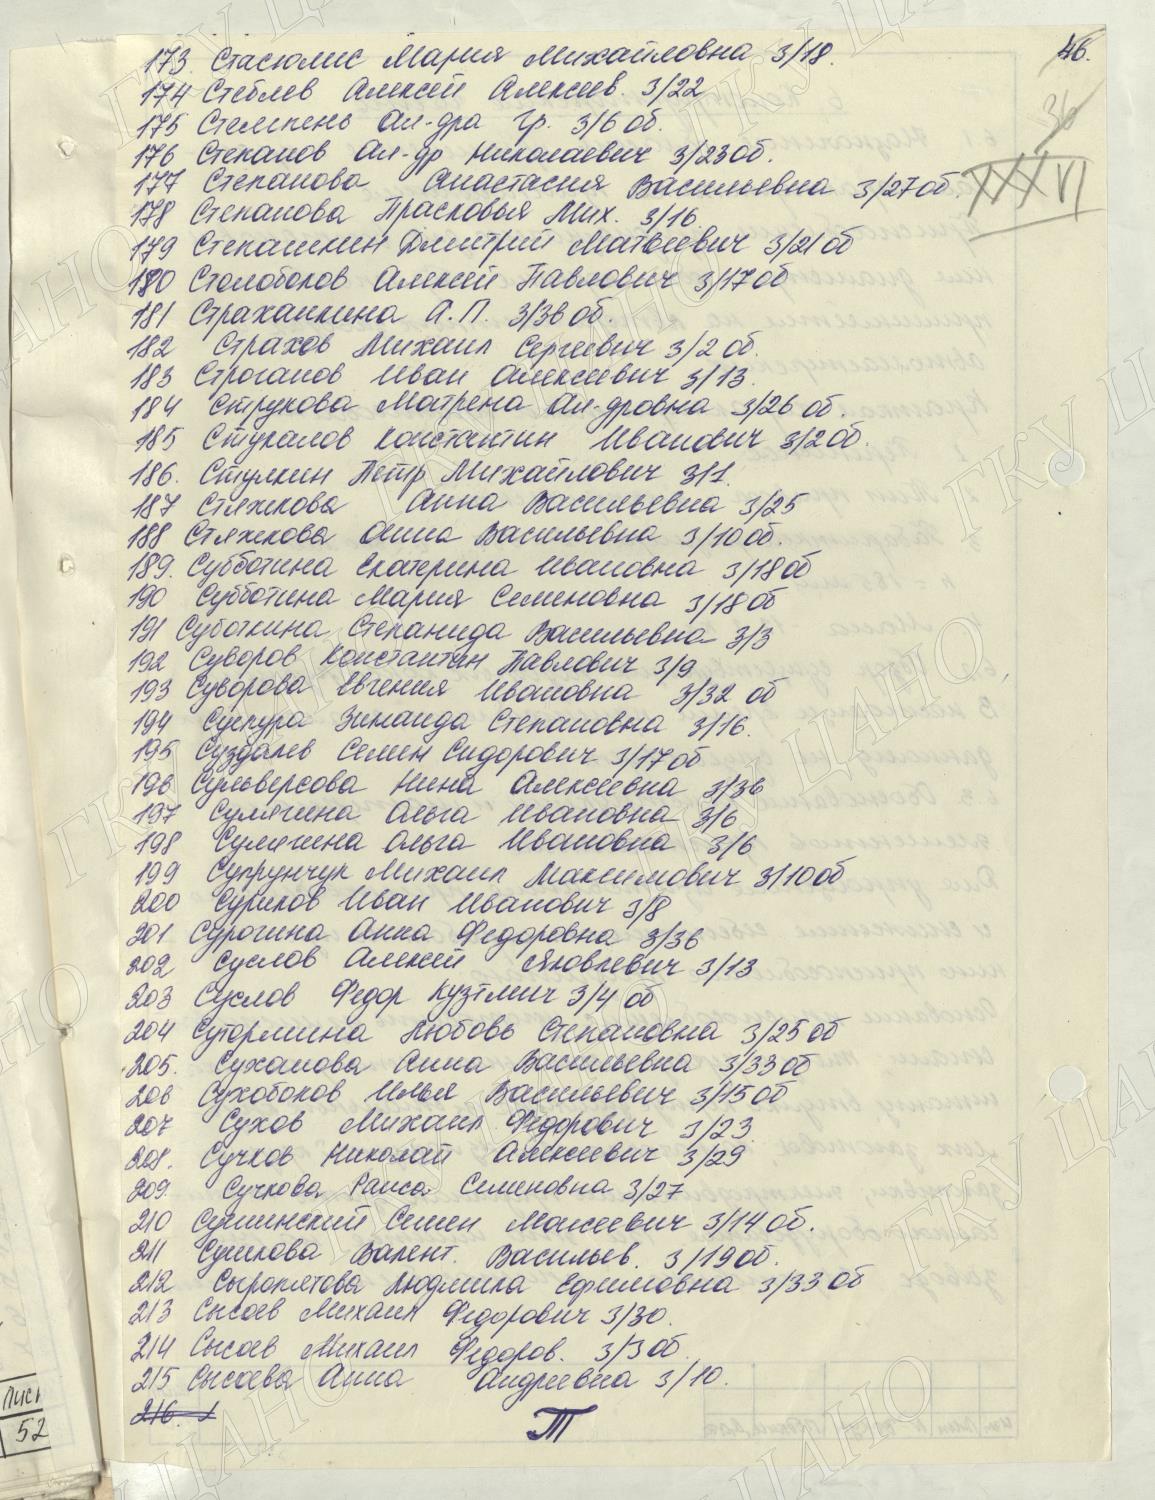 46.
36
XXXVI
173. Стасюлис Мария Михайловна 3/18.
174 Стеблев Алексей Алексеев. 3/22
175 Стемпень Ал-дра Гр. 3/6 об.
176 Степанов Ал-др Николаевич 3/23об.
177 Степанова Анастасия Васильевна 3/27об.
178 Степанова Прасковья Мих. 3/16
179 Степашкин Дмитрий Матвеевич 3/21 об
180 Столобоков Алексей Павлович 3/17 об
181 Страхалкина А.П. 3/36 об.
182 Страхов Михаил Сергеевич 3/2 об.
183 Строганов Иван Алексеевич 3/13.
184 Струкова Матрена Ал-дровна 3/26 об.
185 Стукалов Константин Иванович 3/2 об.
186. Стулкин Петр Михайлович 3/1.
187 Стяжкова Анна Васильевна 3/25
188 Стяжкова Анна Васильевна 3/10 об.
189. Субботина Екатерина Ивановна 3/18 об
190 Субботина Мария Семеновна 3/18 об
191 Суботкина Степанида Васильевна 3/3
192 Суворов Константин Павлович 3/9
193 Суворова Евгения Ивановна 3/32 об
194 Зинаида Степановна 3/16.
195 Суздалев Семен Сидорович 3/17 об
196 Сульверсова Нина Алексеевна 3/36
197 Сумягина Ольга Ивановна 3/6
198 Сумягина Ольга Ивановна 3/6
199 Супрунчук Михаил Максимович 3/10 об
200 Суриков Иван Иванович 3/8
201 Сурогина Анна Федоровна 3/36
202 Суслов Алексей Яковлевич 3/13
203 Суслов Федор Кузьмич 3/4 об
204 Сутормина Любовь Степановна 3/25 об
205. Суханова Анна Васильевна 3/33 об
206 Сухобоков Илья Васильевич 3/15 об
207 Сухов Михаил Федорович 3/23
208. Сучков Николай Алексеевич 3/29
209. Сучкова Раиса Семеновна 3/27
210 Сушинский Семен Моисеевич 3/14 об.
211 Сушкова Валент. Васильев. 3/19 об.
212 Сыропятова Людмила Ефимовна 3/33 об
213 Сысоев Михаил Федорович 3/30.
214 Сысоев Михаил Федоров. 3/3 об.
215 Сысоева Анна Андреевна 3/10.
216.
Т
Лист
52
ГКУ ЦАНО